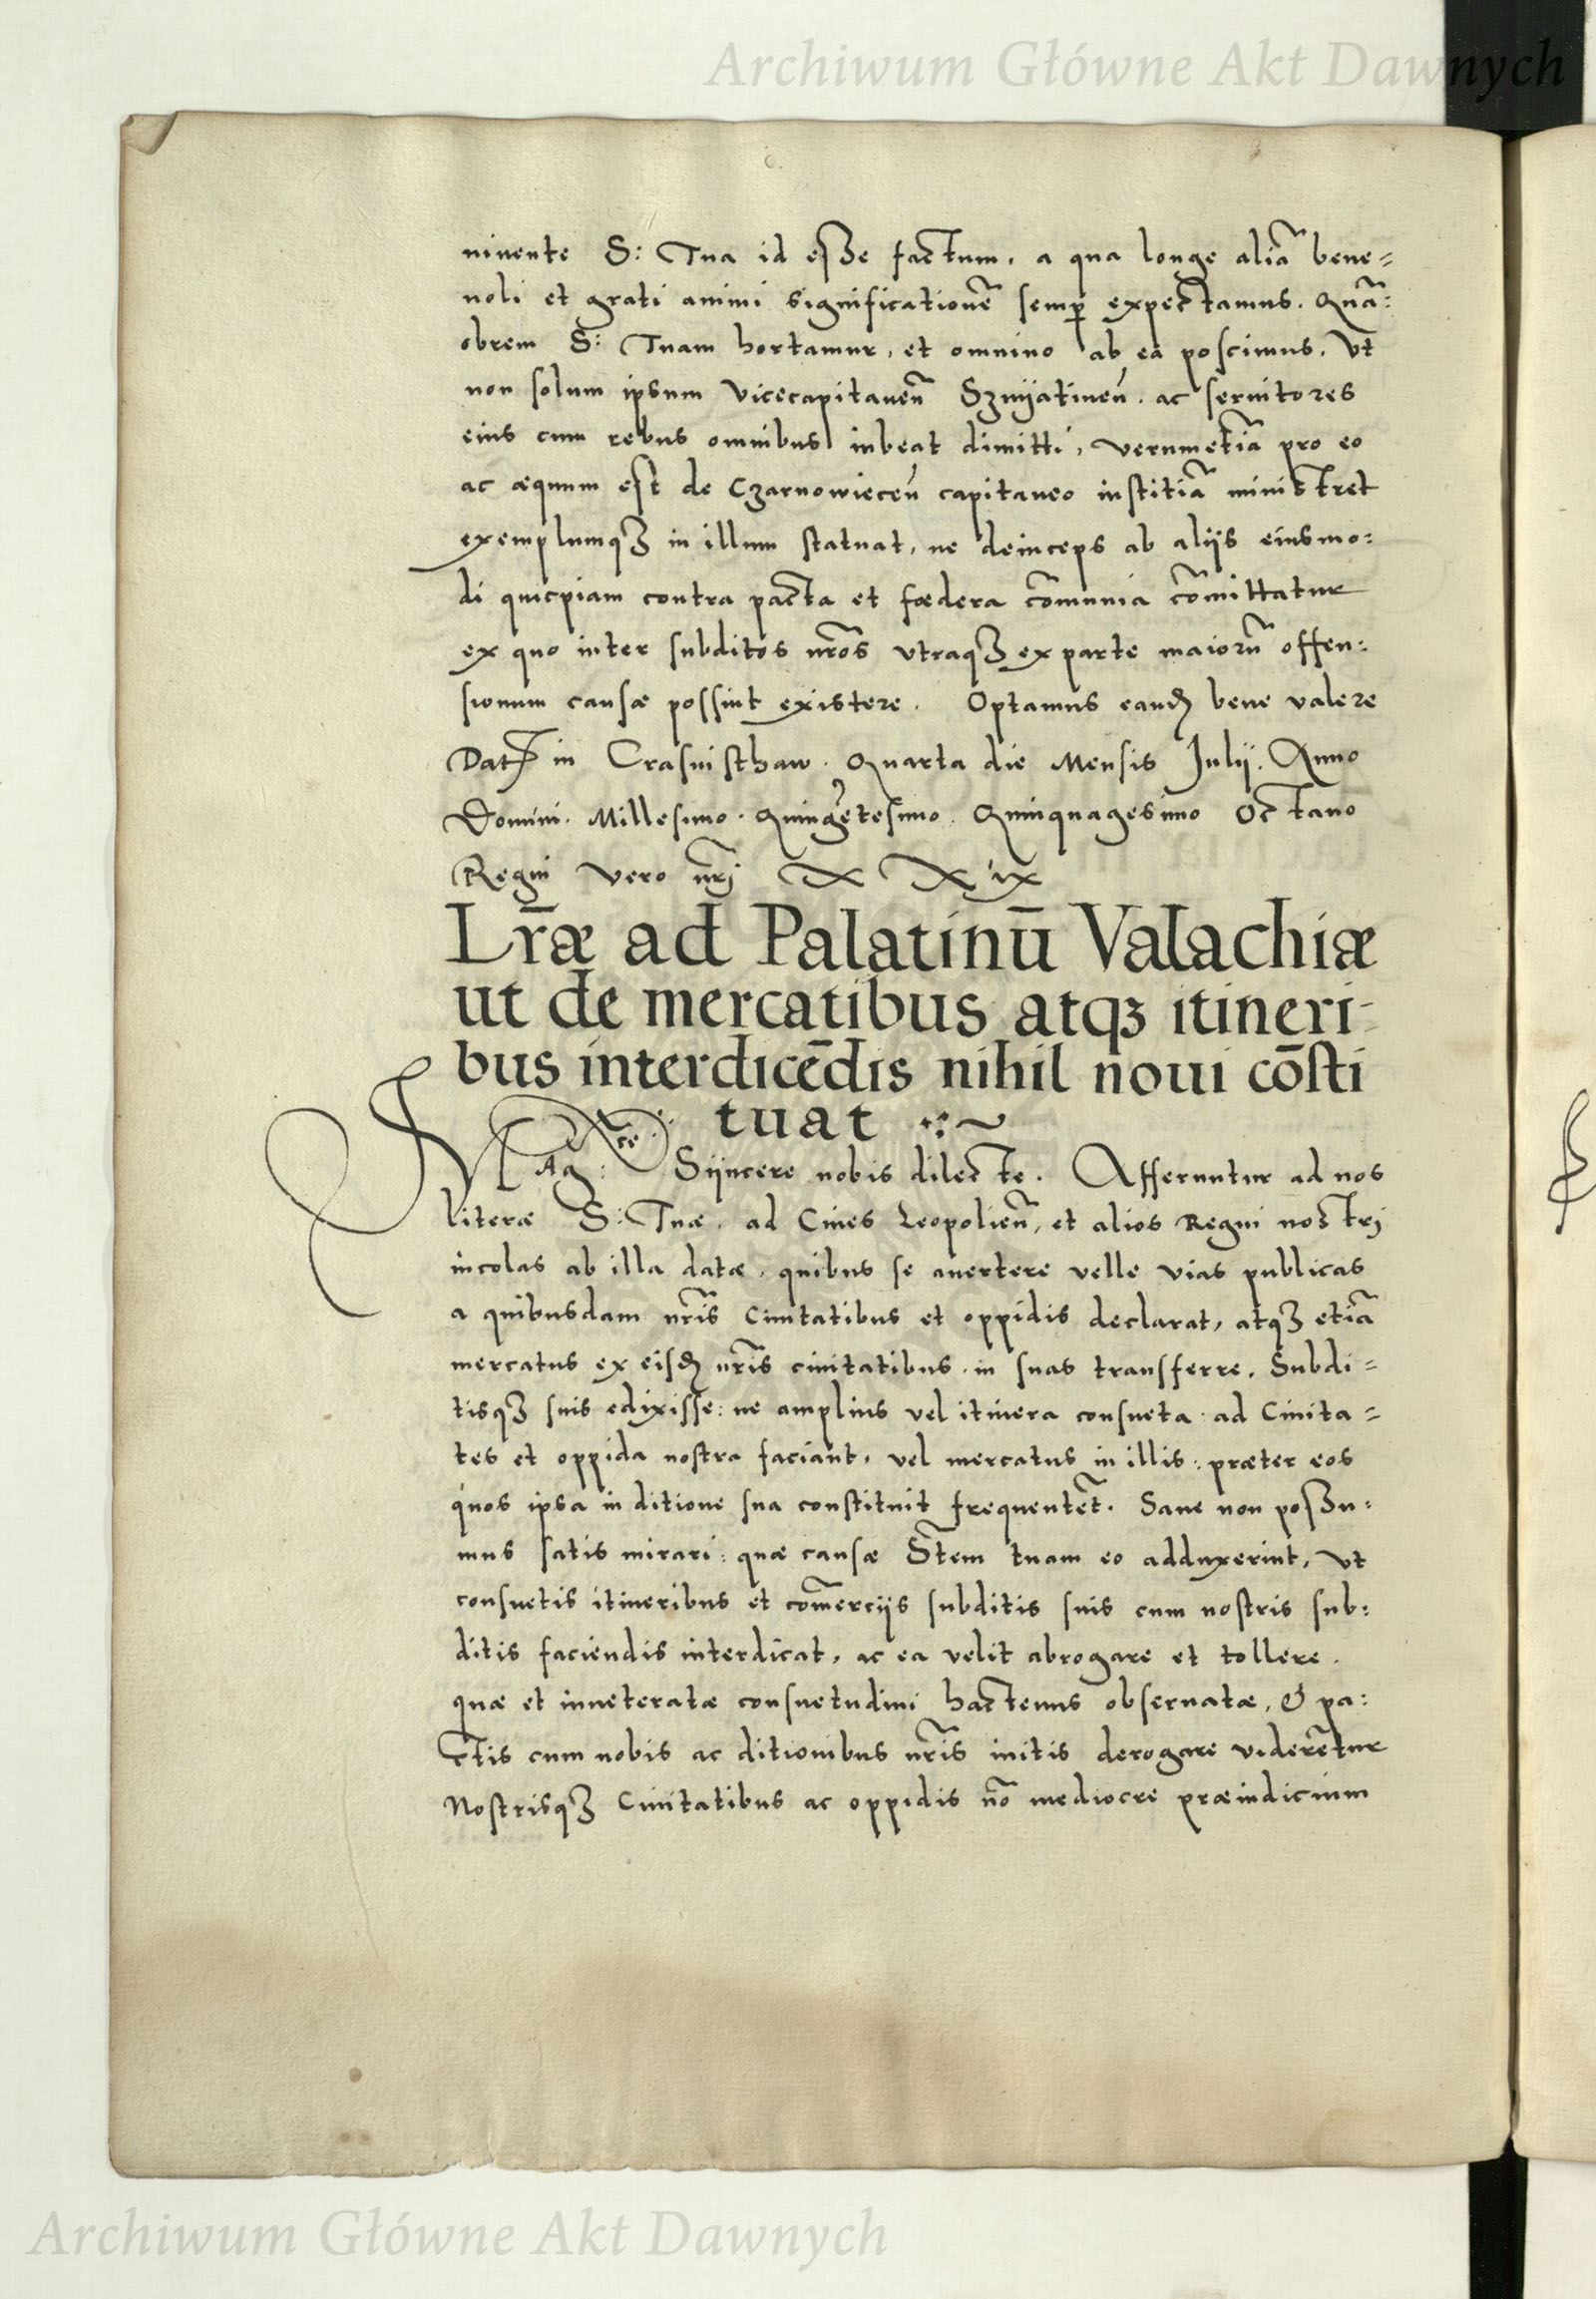 Archiwum Główne Akt Dawnych
niuente S: Tua id esse factum, a qua longe aliā bene=
uoli et grati animi significationē semp̱ expectamus. Quā:
obrem S: Tuam hortamur, et omnino ab ea poscimus, Vt
non solum ipsum Vicecapitaneū Sznijatineñ. ac seruitores
eius cum rebus omnibus iubeat dimitti, verumetiā pro eo
ac æquum est de Czarnowieceñ capitaneo iustitiā ministret
exemplumqʒ in illum statuat, ne deinceps ab alijs eiusmo:
di quicpiam contra pacta et fœdera cōmunia cōmittatur
ex quo inter subditos nr̄os vtraqʒ ex parte maiorū offen:
sionum causæ possint existere. Optamus eandꝫ bene valere
Dat in Crasnisthaw. Quarta die Mensis Julij. Anno
Domini. Millesimo. Quingētesimo. Quinquagesimo Octauo
Regni vero nr̄j XXIX
Lr̄æ ad Palatinū Valachiæ
ut de mercatibus atqʒ itineri-
bus interdicēdis nihil noui cōsti
tuat
MAg:ce: Sijncere nobis dilecte. Afferuntur ad nos
literæ S: Tuæ. ad Ciues Leopolieñ, et alios Regni nostrj
incolas ab illa datæ, quibus se auertere velle vias publicas
a quibusdam nr̄is Ciuitatibus et oppidis declarat, atqʒ etiā
mercatus ex eisdꝫ nr̄is ciuitatibus in suas transferre. Subdi=
tisqʒ suis edixisse: ne amplius vel itinera consueta ad Ciuita=
tes et oppida nostra faciant, vel mercatus in illis: præter eos
quos ipsa in ditione sua constituit frequentēt. Sane non possu:
mus satis mirari: quæ causæ S̄tem tuam eo adduxerint, vt
consuetis itineribus et cōmercijs subditis suis cum nostris sub:
ditis faciendis interdicat, ac ea velit abrogare et tollere.
quæ et inueteratæ consuetudini hactenus obseruatæ, & pa:
ctis cum nobis ac ditionibus nr̄is initis derogare viderētur
Nostrisqʒ Ciuitatibus ac oppidis nō mediocre præiudicium
Archiwum Główne Akt Dawnych